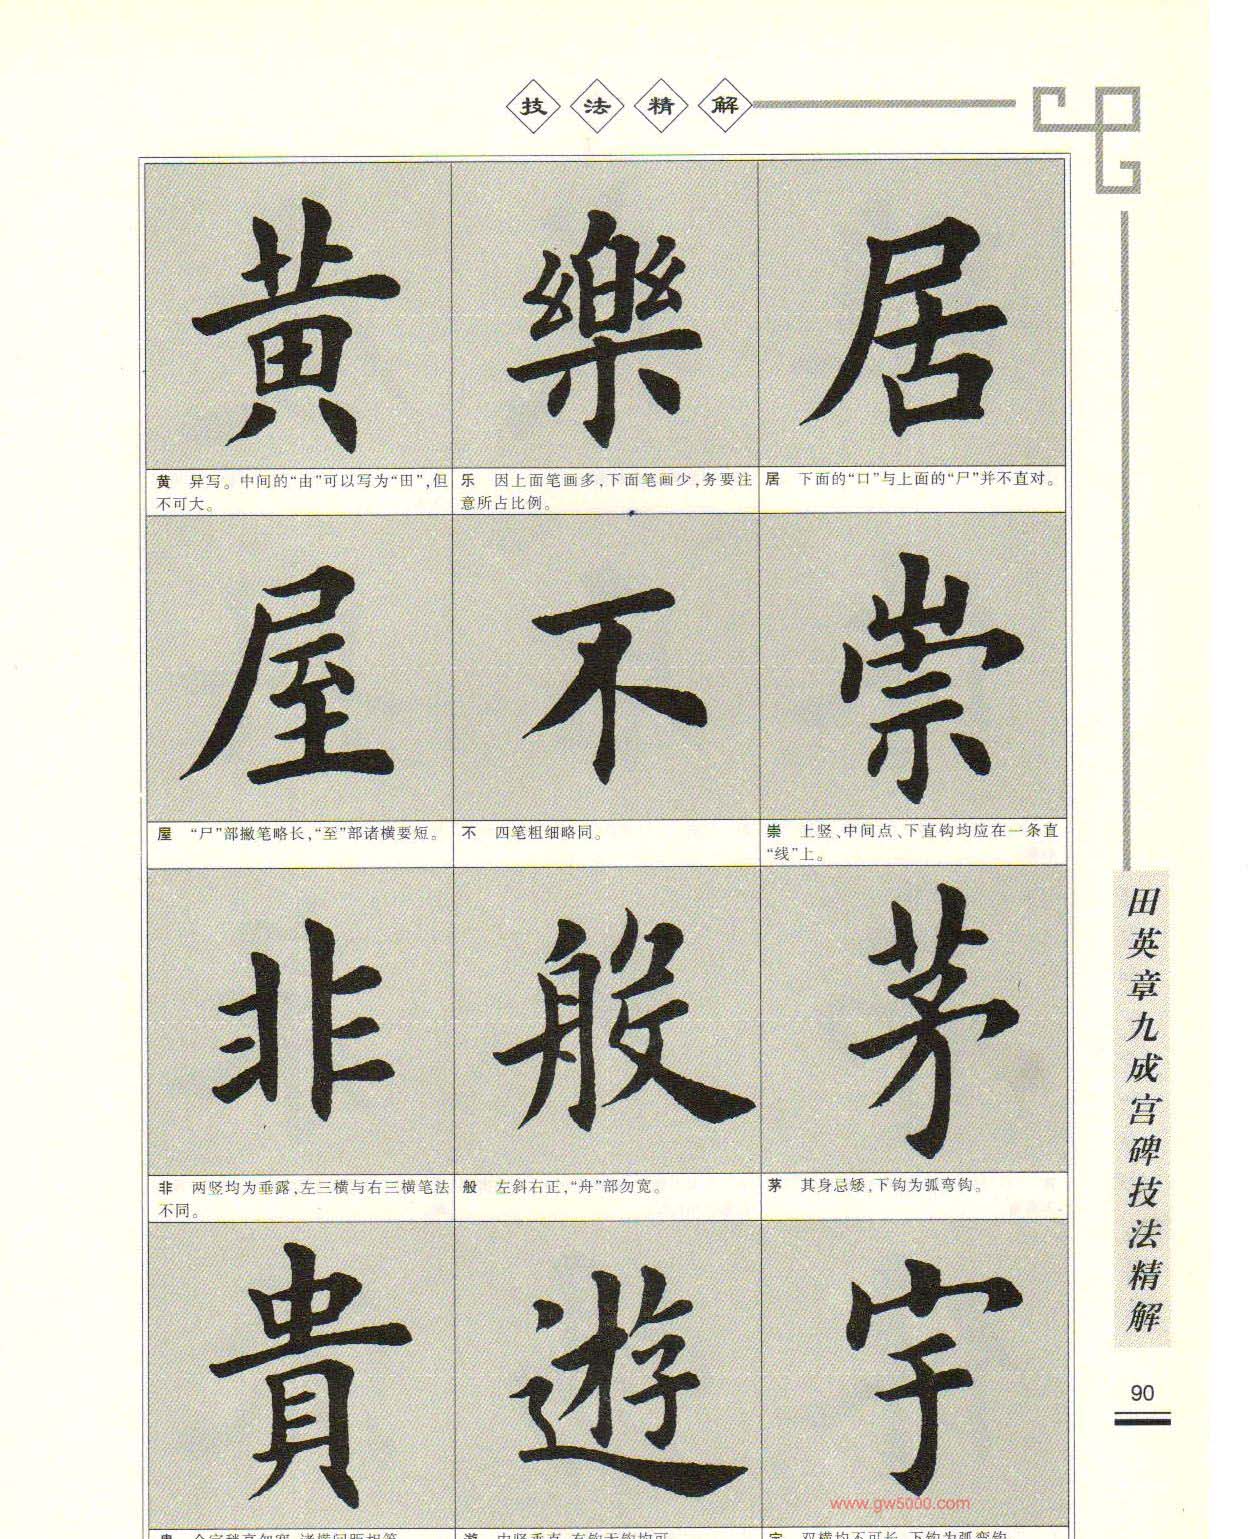 技法精解
黄 樂 居
黄 异写。中间的“由”可以写为“田”,但
不可大。
乐 因上面笔画多,下面笔画少,务要注
意所占比例。
居 下面的“口”与上面的“尸”并不直对。
屋 不 崇
屋 “尸”部撇笔略长,“至”部诸横要短。
不 四笔粗细略同。
崇 上竖、中间点、下直钩均应在一条直
“线”上。
非 般 茅
非 两竖均为垂露,左三横与右三横笔法
不同。
般 左斜右正,“舟”部勿宽。
茅 其身忌矮,下钩为弧弯钩。
貴 遊 宇
田英章九成宫碑技法精解
90
www.gw5000.com